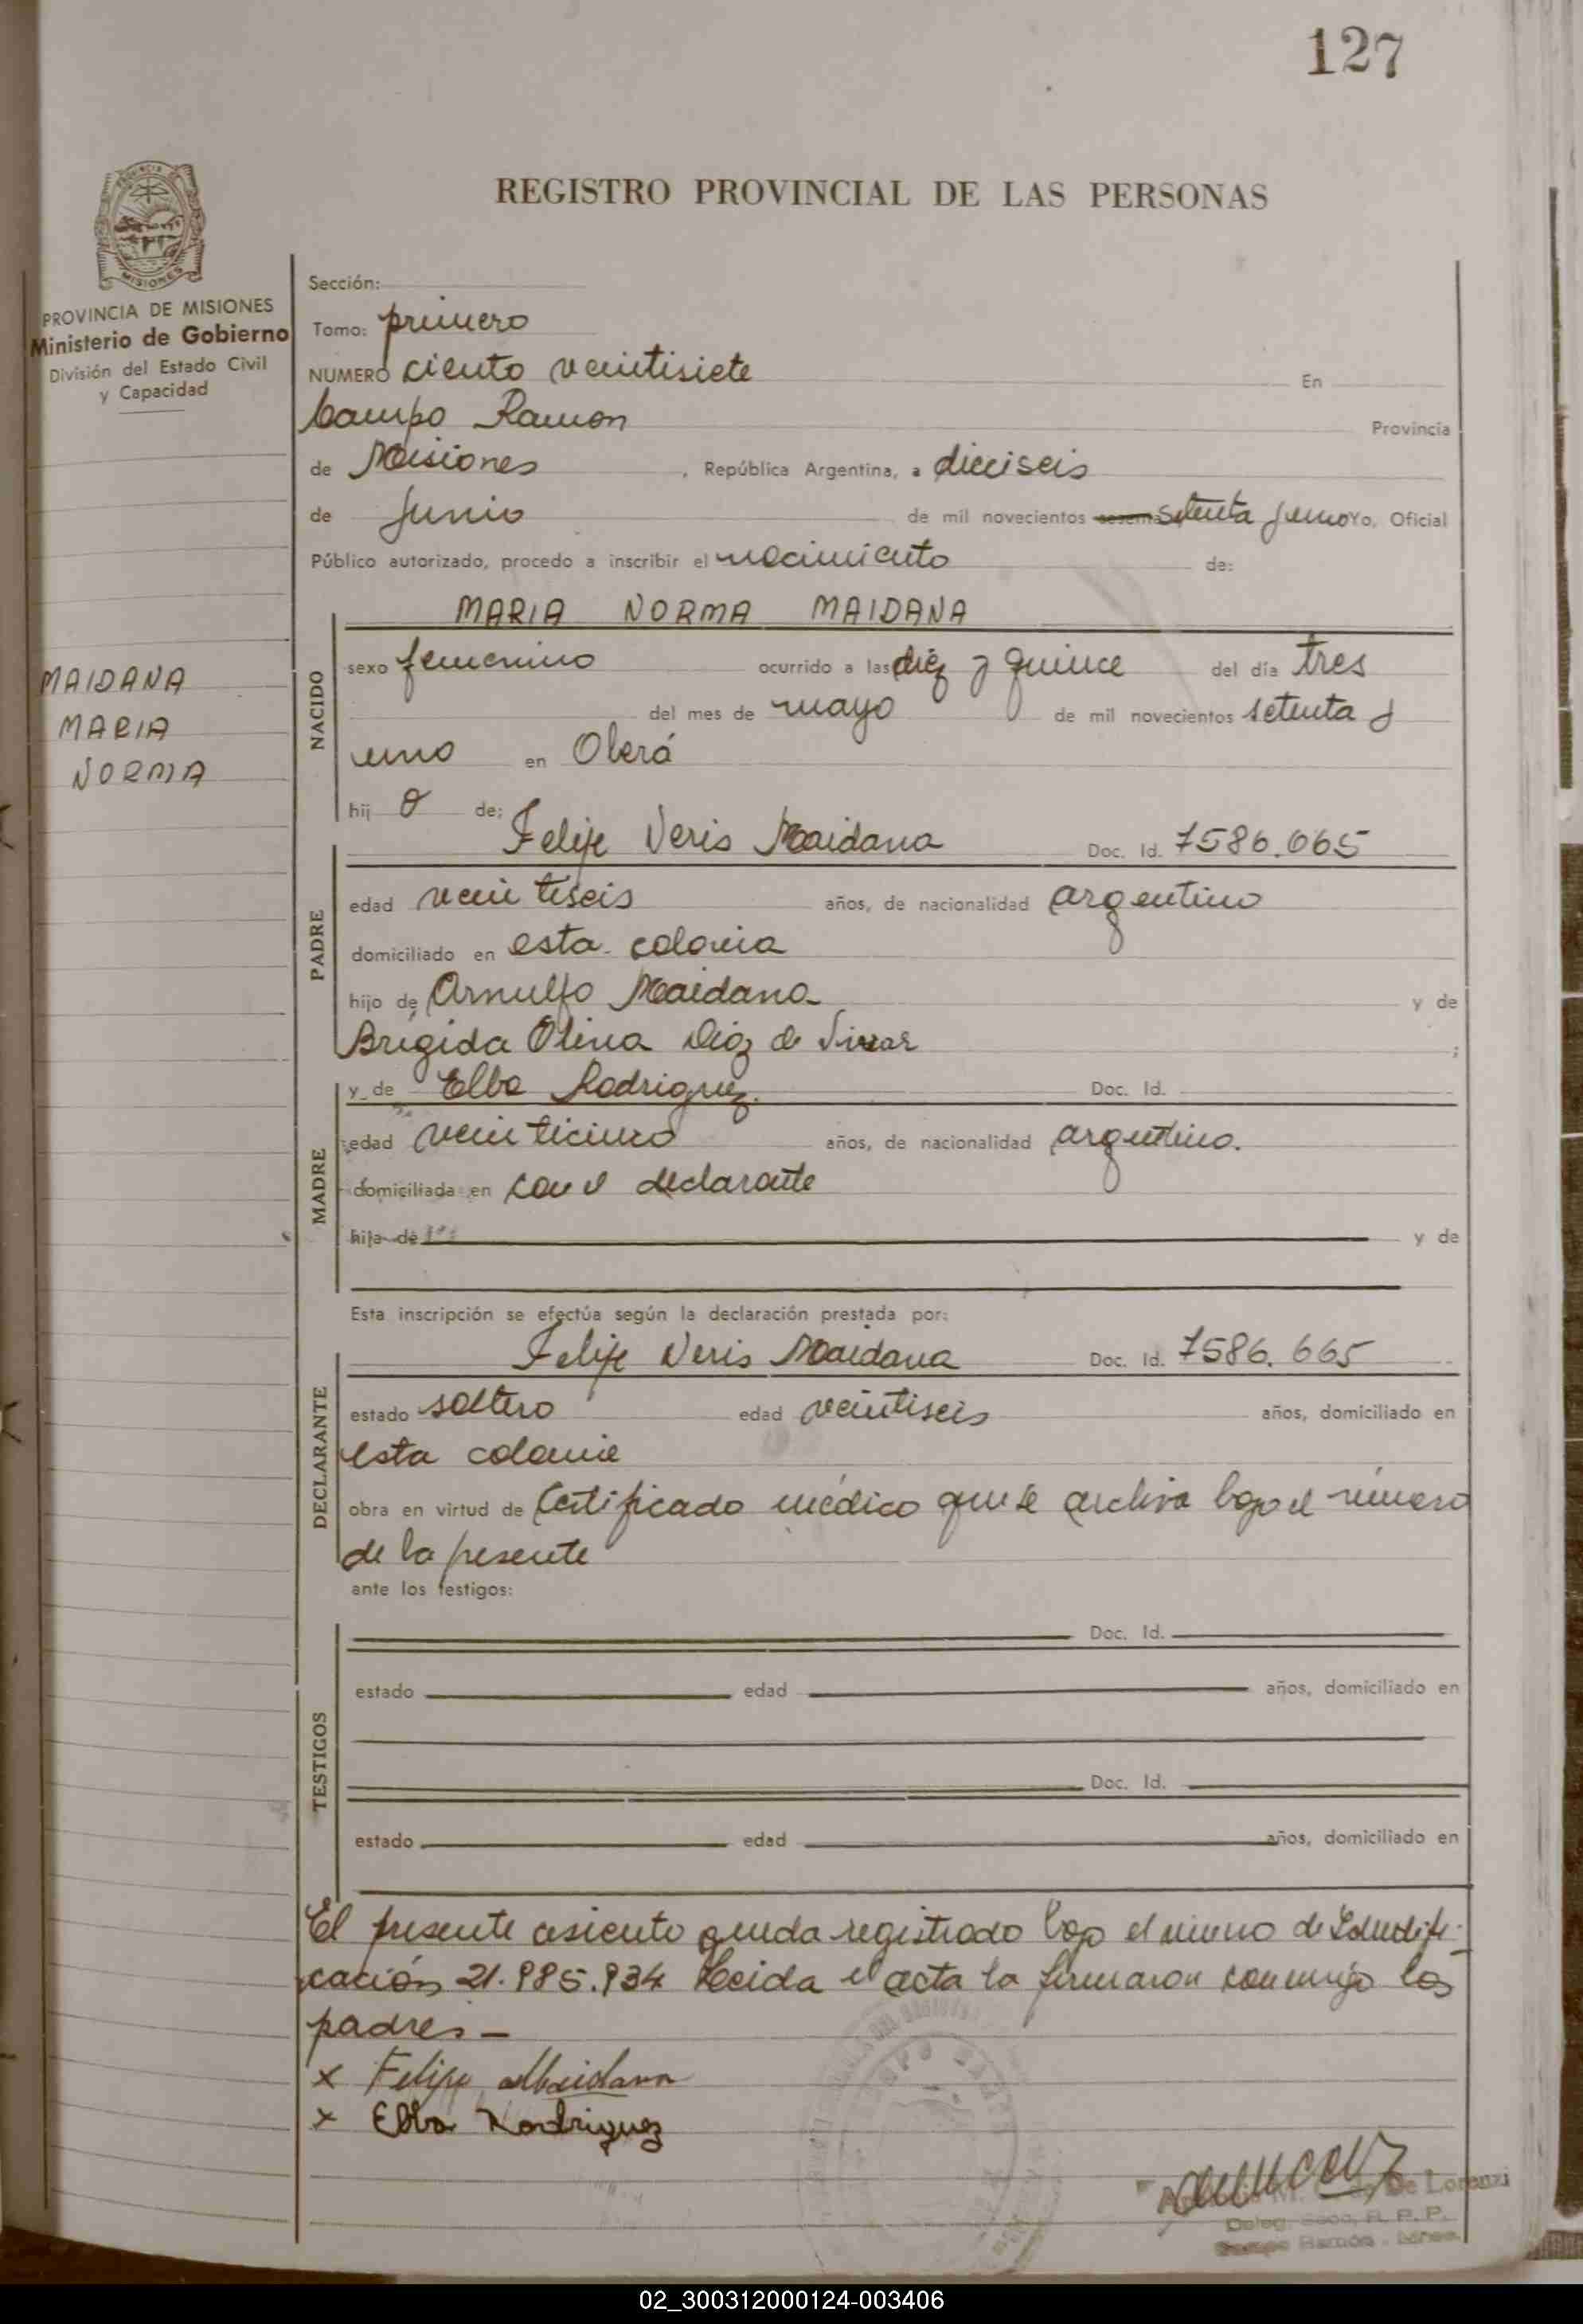 127
REGISTRO PROVINCIAL DE LAS PERSONAS
PROVINCIA DE MISIONES
Ministerio de Gobierno
División del Estado Civil
y Capacidad
MAIDANA
MARIA
NORMA
Sección:
Tomo: primero
NUMERO ciento veintisiete En
Campo Ramon Provincia
de Misiones, República Argentina, a dieciseis
de Junio de mil novecientos setenta y uno Yo, Oficial
Público autorizado, procedo a inscribir el nacimiento de:
NACIDO
MARIA NORMA MAIDANA
sexo femenino ocurrido a las diez y quince del día tres
del mes de mayo de mil novecientos setenta y
uno en Oberá
hij a de:
PADRE
Felipe Neris Maidana Doc. Id. 7586.665
edad veintiseis años, de nacionalidad argentino
domiciliado en esta colonia
hijo de Arnulfo Maidana y de
Brigida Olina Diaz de Vivar ;
MADRE
y de Elba Rodriguez. Doc. Id.
edad veinticinco años, de nacionalidad argentino.
domiciliada en con el declarante
hija de y de
Esta inscripción se efectúa según la declaración prestada por:
DECLARANTE
Felipe Neris Maidana Doc. Id. 7586.665
estado soltero edad veintiseis años, domiciliado en
esta colonia
obra en virtud de Certificado médico que se archiva bajo el número
de la presente
ante los testigos:
TESTIGOS
Doc. Id.
estado edad años, domiciliado en
Doc. Id.
estado edad años, domiciliado en
El presente asiento queda registrado bajo el número de Identifi-
cación 21.985.934 Leida el acta la firmaron conmigo los
padres -
x Felipe Maidana
x Elba Rodriguez
De Lorenzi
Deleg. R. P. P.
Campo Ramón
02_300312000124-003406